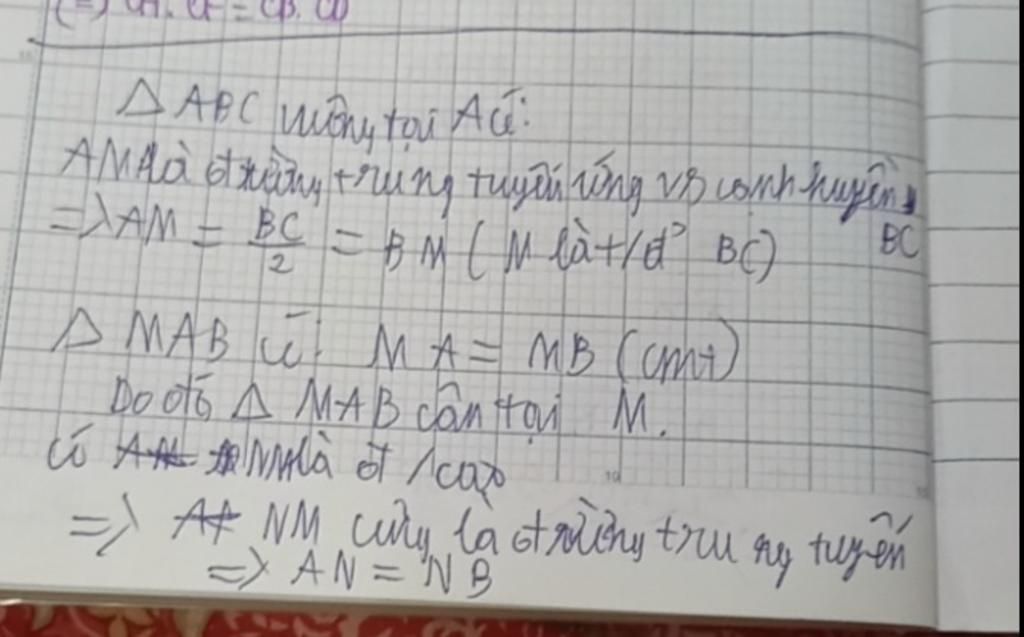 (=) CA. CF = CB. CD
Δ ABC vuông tại A có:
AM là đường trung tuyến ứng vs cạnh huyền BC
=> AM = BC/2 = BM ( M là t/đ BC)
Δ MAB có: MA = MB (cmt)
Do đó Δ MAB cân tại M.
Có NM là đ/cao
=> NM cũng là đường trung tuyến
=> AN = NB